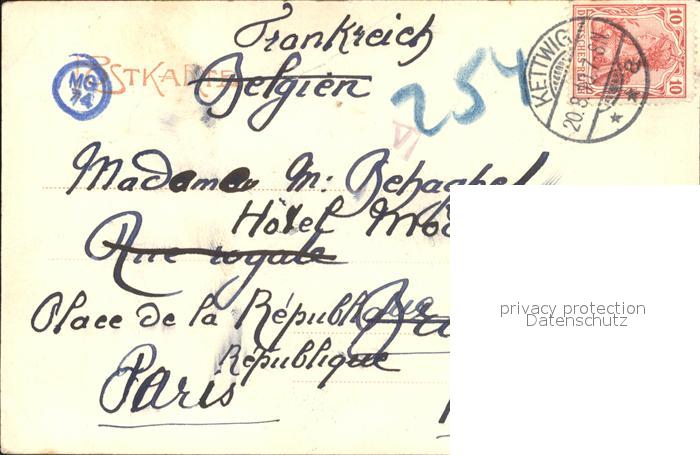 Frankreich
POSTKARTE
Belgien
MG
74
254
KETTWIG
20.8.
10 DEUTSCHES REICH 10
Madame M: Behaghel
Hôtel Mod
Rue royale
Place de la République
République
Paris
privacy protection
Datenschutz